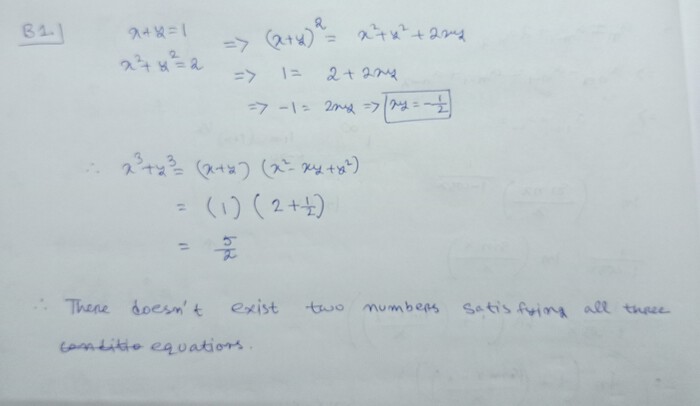 B1.] x+y=1 => (x+y)² = x²+y²+2xy
x²+y²=2 => 1 = 2 + 2xy
=> -1 = 2xy => xy = -1/2
∴ x³+y³ = (x+y) (x²-xy+y²)
= (1) (2+1/2)
= 5/2
∴ There doesn't exist two numbers satisfying all three
conditio equations.